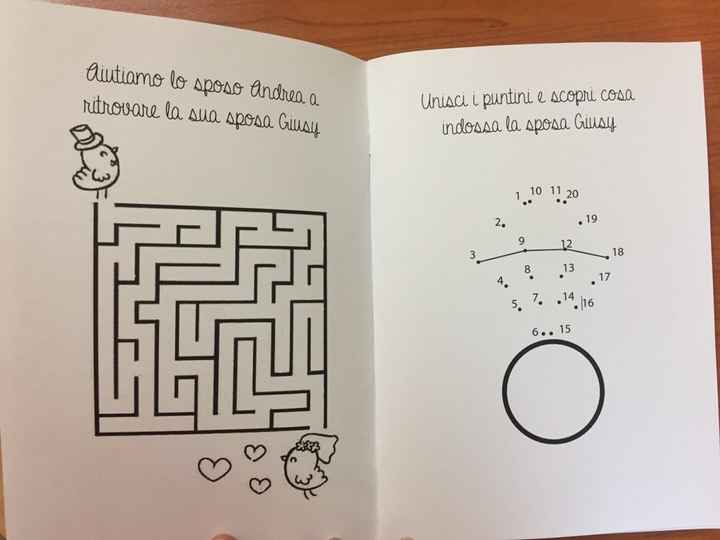 Aiutiamo lo sposo Andrea a
ritrovare la sua sposa Giusy
Unisci i puntini e scopri cosa
indossa la sposa Giusy
1 10 11 20
2 19
3 9 12 18
4 8 13 17
5 7 14 16
6 15